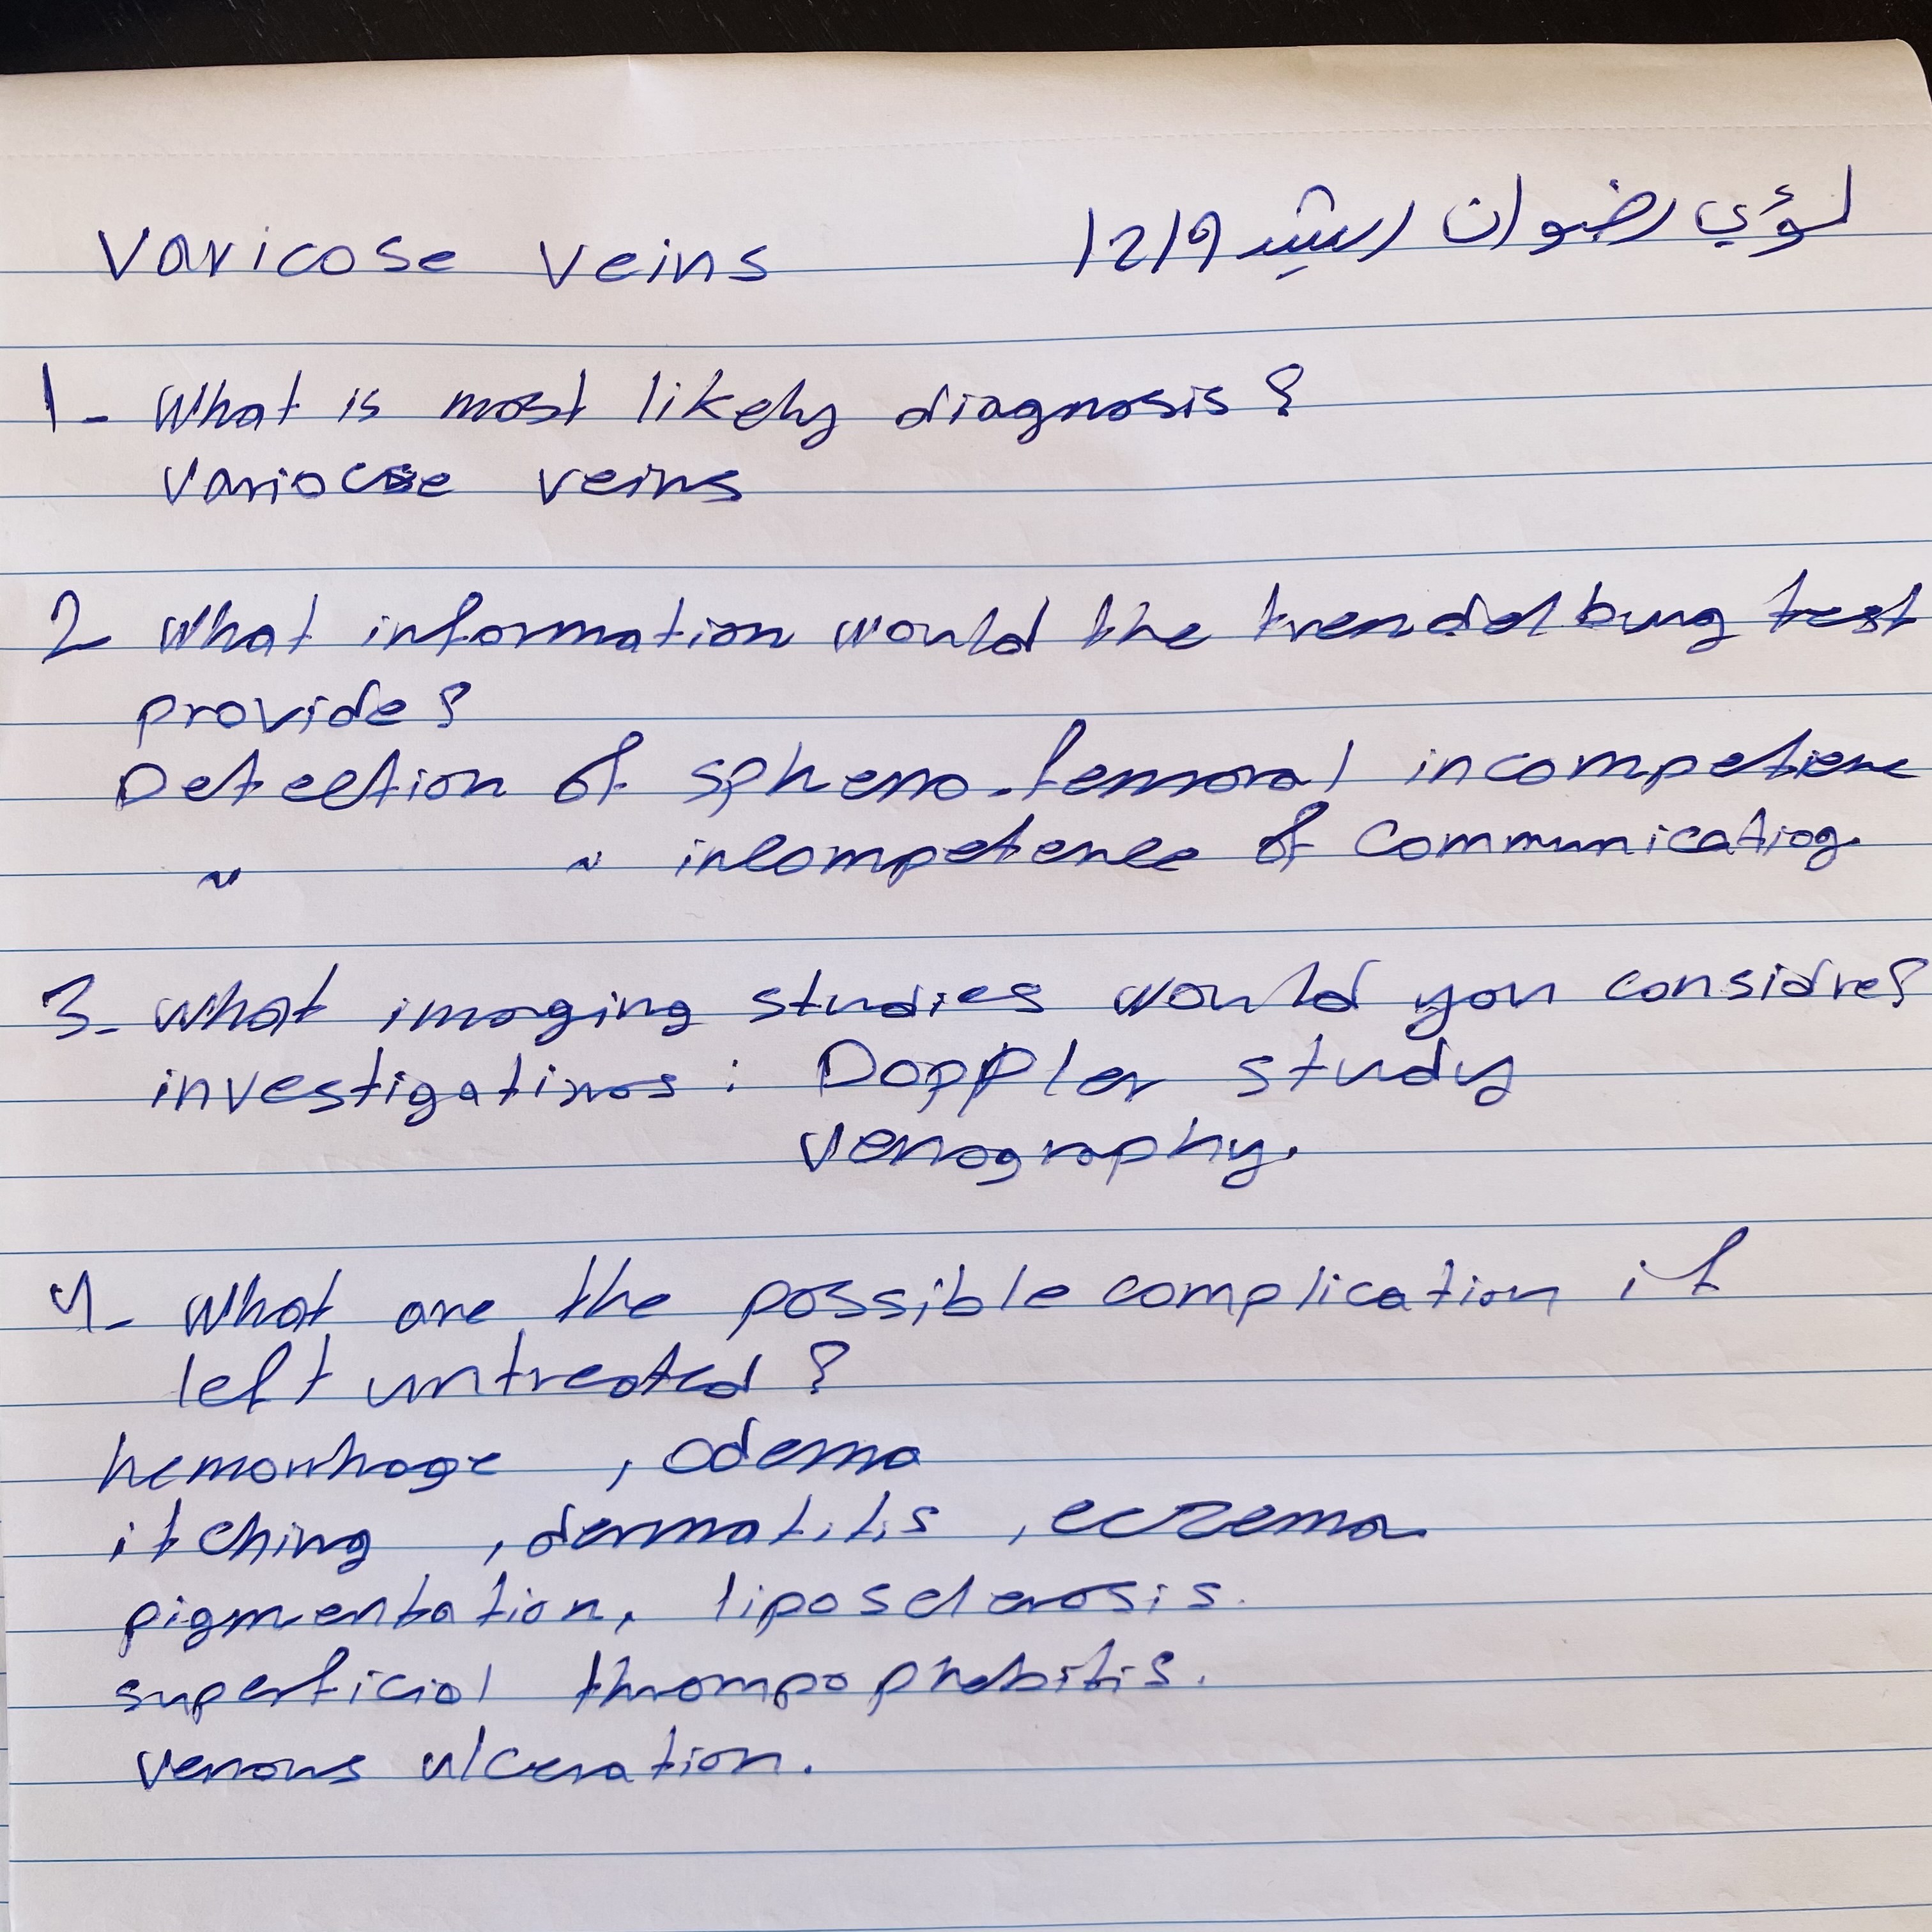 Varicose veins لؤي رضوان ارشيد 1219
1- What is most likely diagnosis?
Variocse veins
2 What information would the trendelburg test
provide?
Detection of spheno-femoral incompetiene
~ ~ incompetence of communicatiog.
3- What imaging studies would you considre?
investigatinos : Doppler study
venography.
4- What are the possible complication if
left untreated?
hemorrhage , odema
itching , dermatitis , eczema
pigmentation, liposclerosis.
superficial thrompophebitis.
venous ulceration.